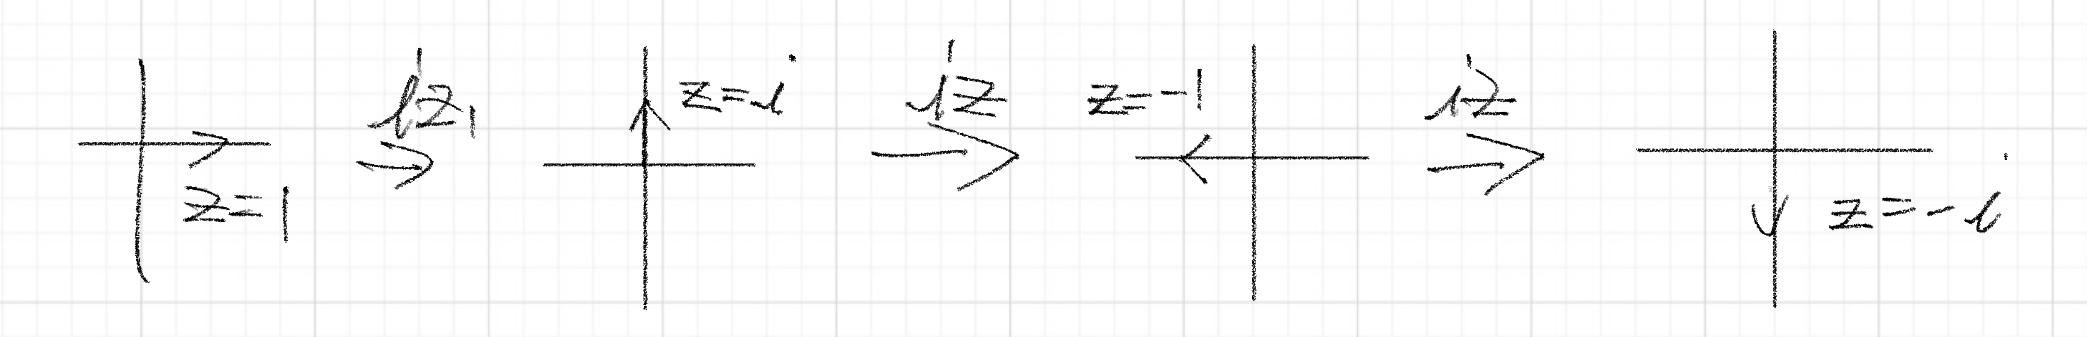 z=1
iz₁
z=i
iz
z=-1
iz
z=-i